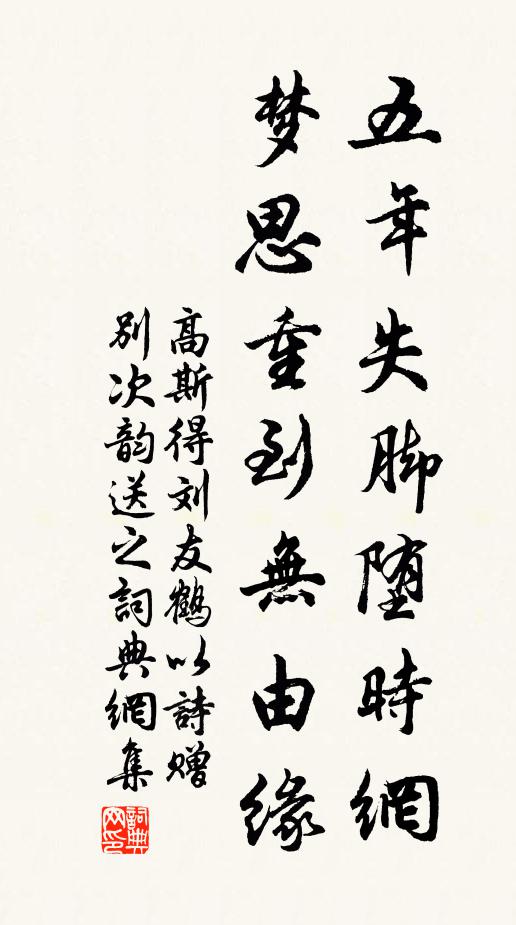 五年失脚堕時網
梦思重到無由緣
高斯得刘友鶴以詩贈
别次韵送之詞典網集
詞典网印